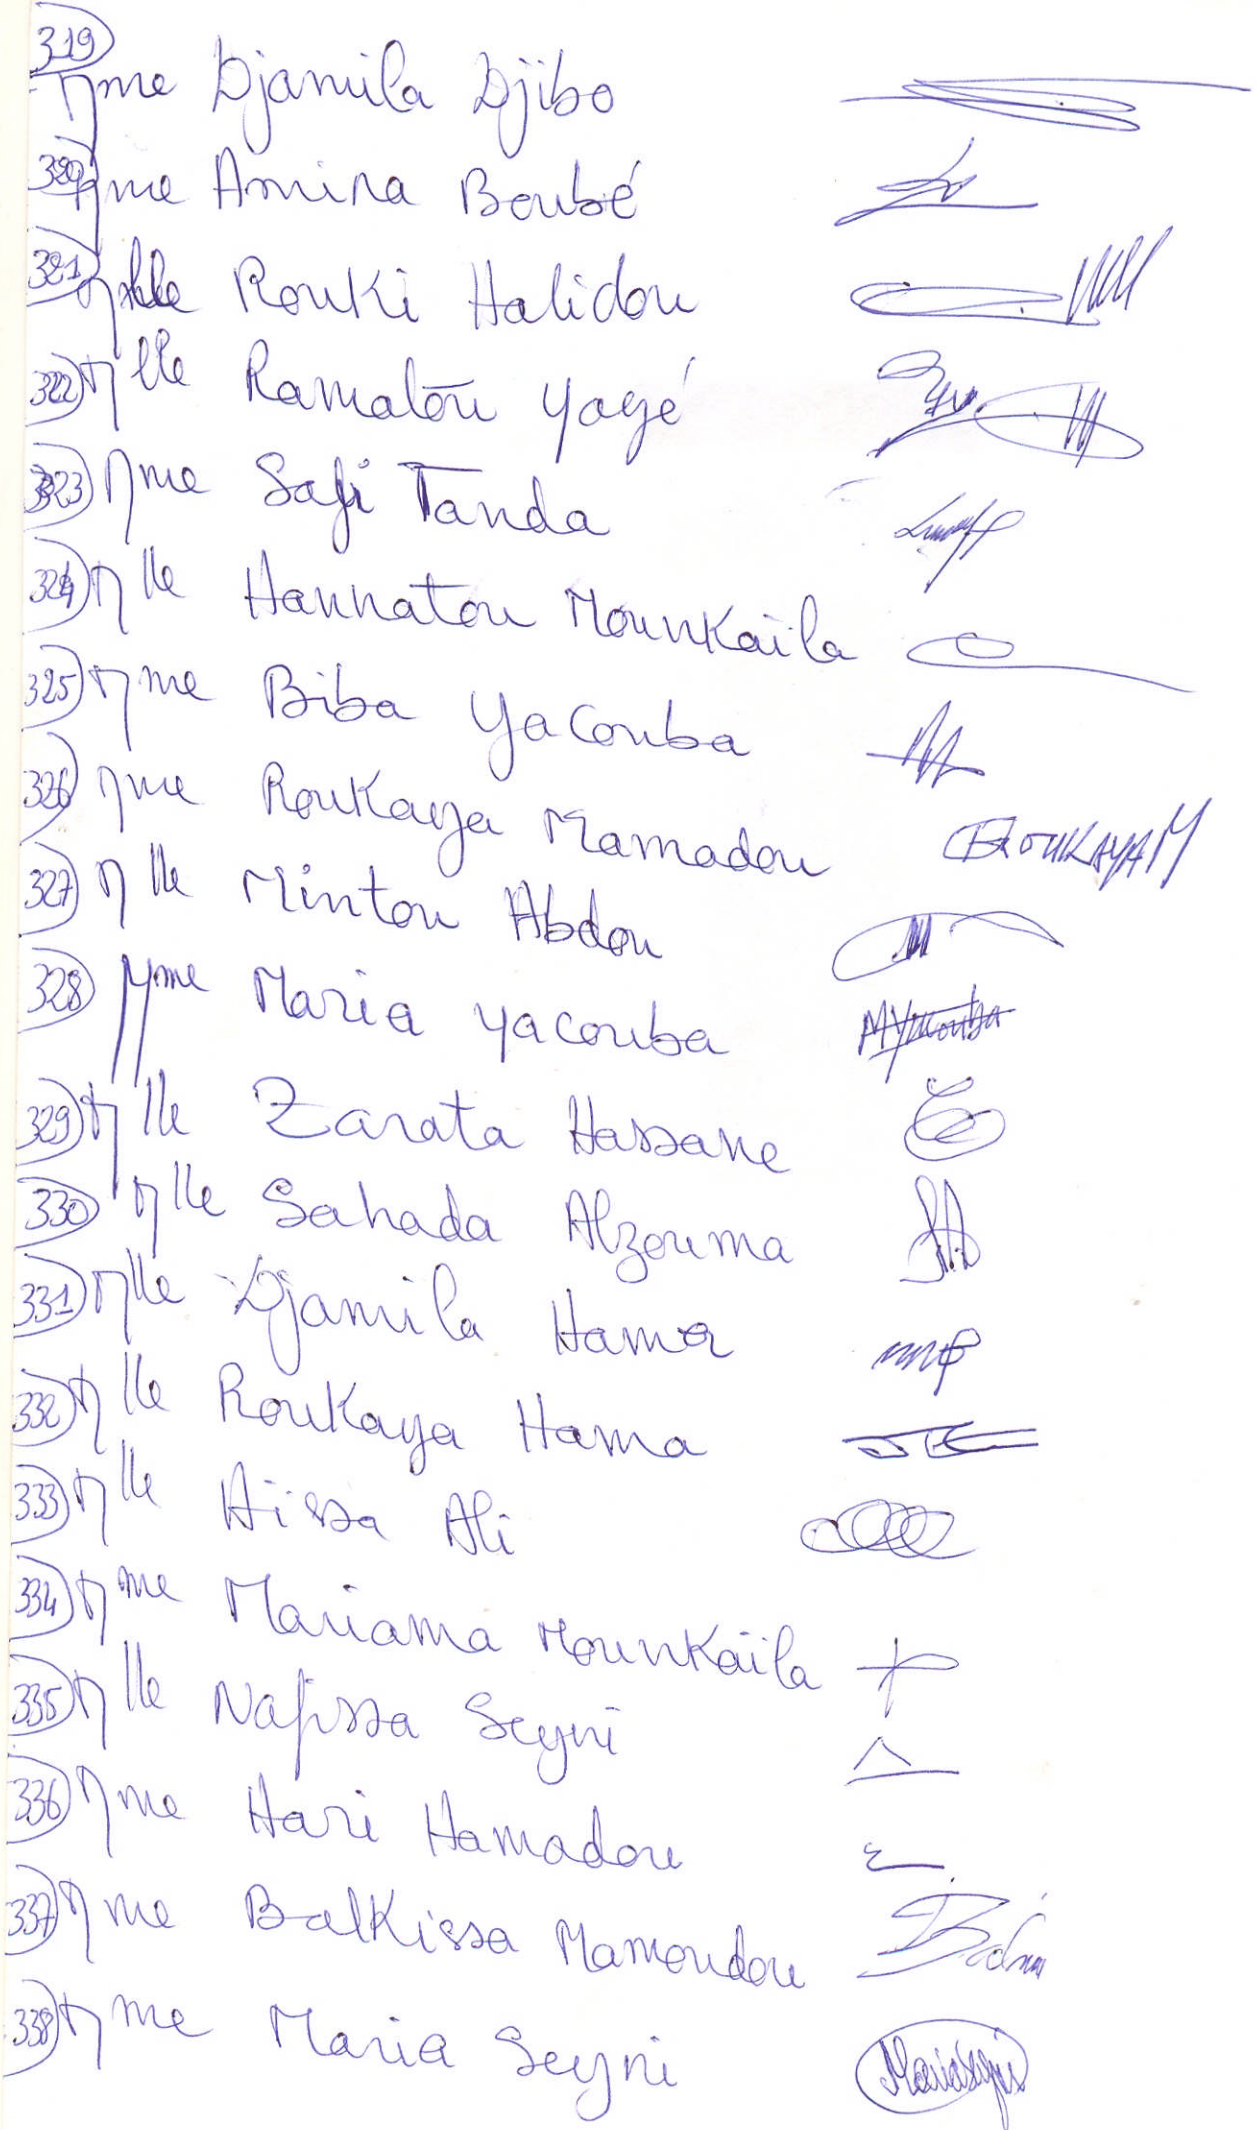 319 Mme Djamila Djibo
320 Mme Amina Boubé
321 Mlle Rouki Halidou
322 Mlle Ramatou Yayé
323 Mme Safi Tanda
324 Mlle Hannatou Mounkaïla
325 Mme Biba Yacouba
326 Mme Roukaya Mamadou ROUKAYAM
327 Mlle Mintou Abdou
328 Mme Maria Yacouba MYacouba
329 Mlle Zarata Hassane
330 Mlle Sahada Alzouma
331 Mlle Djamila Hama
332 Mlle Roukaya Hama
333 Mlle Aissa Ali
334 Mme Mariama Mounkaïla
335 Mlle Nafissa Seyni
336 Mme Hari Hamadou
337 Mme Balkissa Mamoudou
338 Mme Maria Seyni Maria Seyni